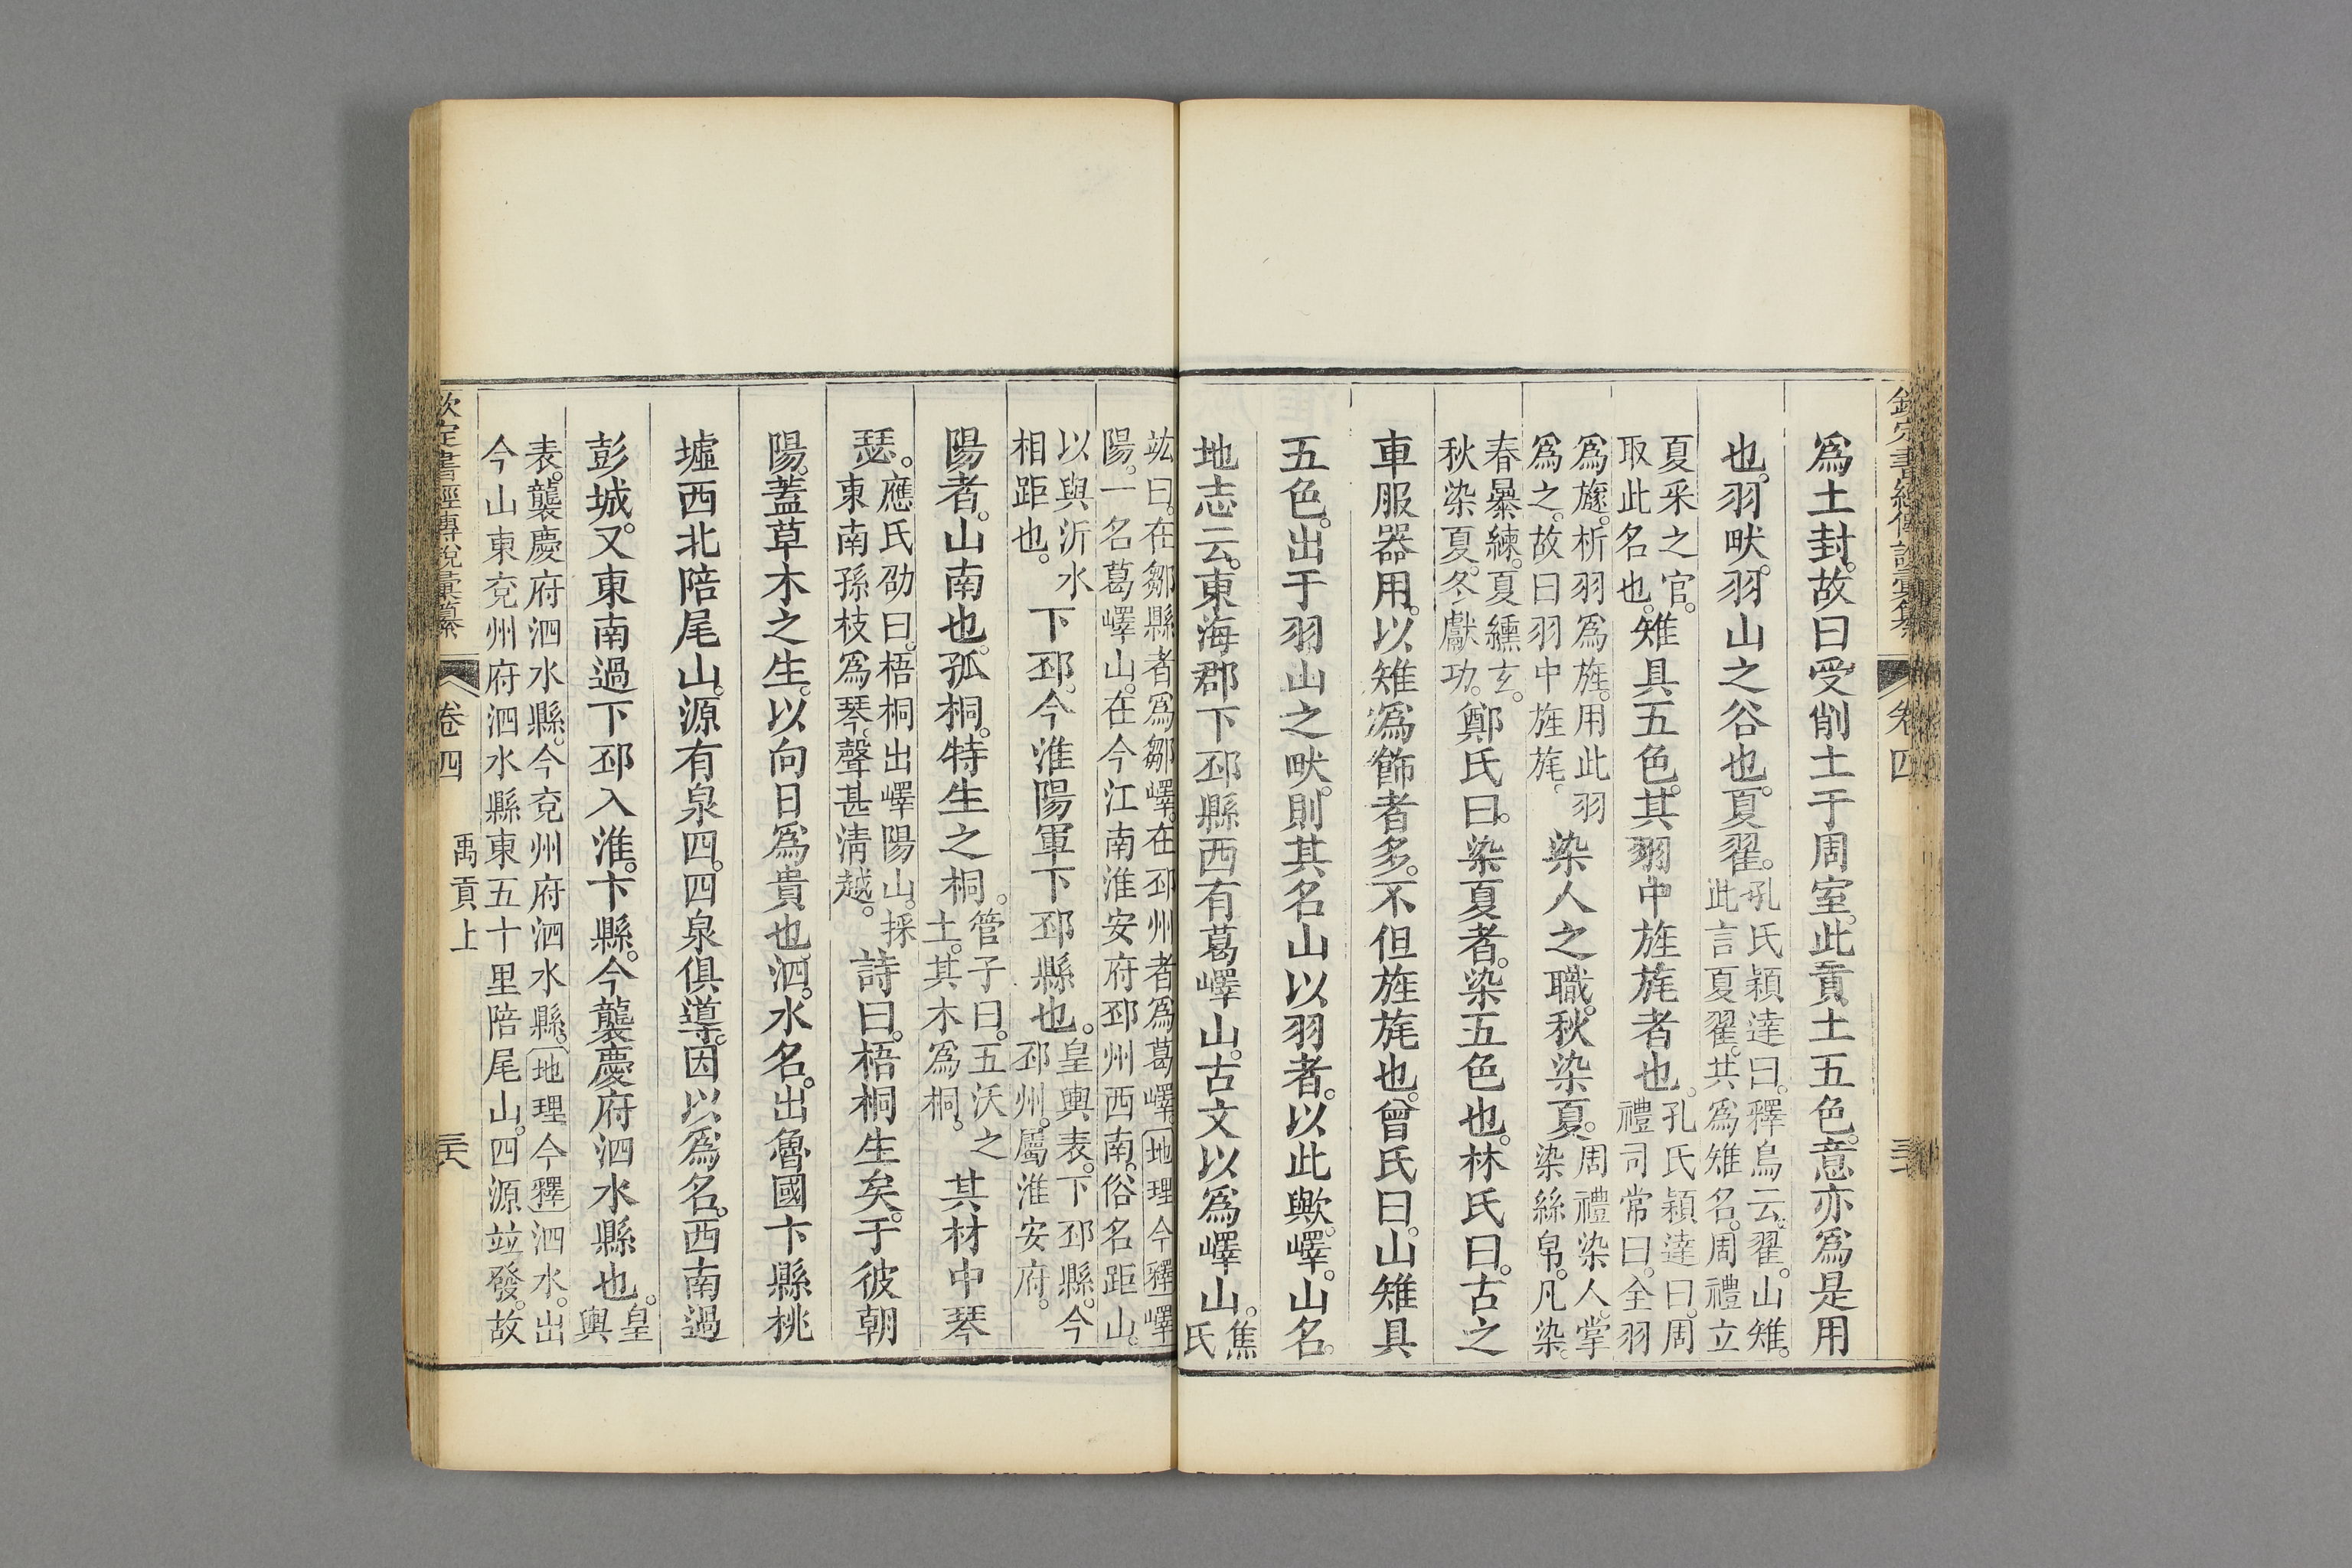 爲土封。故曰受削土于周室。此貢土五色。意亦爲是用
也。羽畎。羽山之谷也。夏翟。孔氏穎達曰。釋鳥云。翟。山雉。此言夏翟。共爲雉名。周禮立
夏采之官。取此名也。雉具五色。其羽中旌旄者也。孔氏穎達曰。周禮司常曰。全羽
爲旞。析羽爲旌。用此羽爲之。故曰羽中旌旄。染人之職。秋染夏。周禮染人。掌染絲帛。凡染。
春暴練。夏纁玄。秋染夏。冬獻功。鄭氏曰。染夏者。染五色也。林氏曰。古之
車服器用。以雉爲飾者多。不但旌旄也。曾氏曰。山雉具
五色。出于羽山之畎。則其名山以羽者。以此歟。嶧。山名。
地志云。東海郡下邳縣西有葛嶧山。古文以爲嶧山。焦氏
竑曰。在鄒縣者爲鄒嶧。在邳州者爲葛嶧。地理今釋嶧
陽。一名葛嶧山。在今江南淮安府邳州西南。俗名距山。
以與沂水相距也。下邳。今淮陽軍下邳縣也。皇輿表。下邳縣。今邳州。屬淮安府。
陽者。山南也。孤桐。特生之桐。管子曰。五沃之土。其木爲桐。其材中琴
瑟。應氏劭曰。梧桐出嶧陽山。採東南孫枝爲琴。聲甚淸越。詩曰。梧桐生矣。于彼朝
陽。蓋草木之生。以向日爲貴也。泗。水名。出魯國卞縣桃
墟西北陪尾山。源有泉四。四泉俱導。因以爲名。西南過
彭城。又東南過下邳入淮。卞縣。今襲慶府泗水縣也。皇輿
表。襲慶府泗水縣。今兗州府泗水縣。地理今釋泗水。出
今山東兗州府泗水縣東五十里陪尾山。四源竝發。故
欽定書經傳說彙纂 卷四 禹貢上